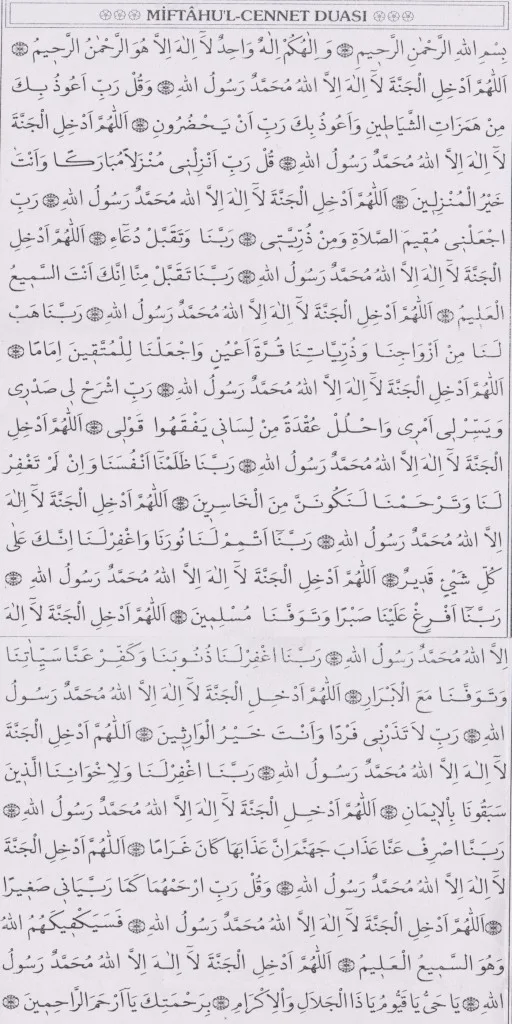 MİFTÂHU'L-CENNET DUASI
بِسْمِ اللهِ الرَّحْمٰنِ الرَّحٖيمِ وَ اِلٰهُكُمْ اِلٰهٌ وَاحِدٌ لَآ اِلٰهَ اِلَّا هُوَ الرَّحْمٰنُ الرَّحٖيمُ
اَللّٰهُمَّ اَدْخِلِ الْجَنَّةَ لَآ اِلٰهَ اِلَّا اللهُ مُحَمَّدٌ رَسُولُ اللهِ وَقُلْ رَبِّ اَعُوذُ بِكَ
مِنْ هَمَزَاتِ الشَّيَاطٖينِ وَاَعُوذُ بِكَ رَبِّ اَنْ يَحْضُرُونِ اَللّٰهُمَّ اَدْخِلِ الْجَنَّةَ
لَآ اِلٰهَ اِلَّا اللهُ مُحَمَّدٌ رَسُولُ اللهِ قُلْ رَبِّ اَنْزِلْنٖى مُنْزَلاً مُبَارَكًا وَاَنْتَ
خَيْرُ الْمُنْزِلٖينَ اَللّٰهُمَّ اَدْخِلِ الْجَنَّةَ لَآ اِلٰهَ اِلَّا اللهُ مُحَمَّدٌ رَسُولُ اللهِ رَبِّ
اجْعَلْنٖى مُقٖيمَ الصَّلَاةِ وَمِنْ ذُرِّيَّتٖى رَبَّنَا وَتَقَبَّلْ دُعَآءِ اَللّٰهُمَّ اَدْخِلِ
الْجَنَّةَ لَآ اِلٰهَ اِلَّا اللهُ مُحَمَّدٌ رَسُولُ اللهِ رَبَّنَا تَقَبَّلْ مِنَّا اِنَّكَ اَنْتَ السَّمٖيعُ
الْعَلٖيمُ اَللّٰهُمَّ اَدْخِلِ الْجَنَّةَ لَآ اِلٰهَ اِلَّا اللهُ مُحَمَّدٌ رَسُولُ اللهِ رَبَّنَا هَبْ
لَنَا مِنْ اَزْوَاجِنَا وَذُرِّيَّاتِنَا قُرَّةَ اَعْيُنٍ وَاجْعَلْنَا لِلْمُتَّقٖينَ اِمَامًا
اَللّٰهُمَّ اَدْخِلِ الْجَنَّةَ لَآ اِلٰهَ اِلَّا اللهُ مُحَمَّدٌ رَسُولُ اللهِ رَبِّ اشْرَحْ لٖى صَدْرٖى
وَيَسِّرْ لٖى اَمْرٖى وَاحْلُلْ عُقْدَةً مِنْ لِسَانٖى يَفْقَهُوا قَوْلٖى اَللّٰهُمَّ اَدْخِلِ
الْجَنَّةَ لَآ اِلٰهَ اِلَّا اللهُ مُحَمَّدٌ رَسُولُ اللهِ رَبَّنَا ظَلَمْنَآ اَنْفُسَنَا وَاِنْ لَمْ تَغْفِرْ
لَنَا وَتَرْحَمْنَا لَنَكُونَنَّ مِنَ الْخَاسِرٖينَ اَللّٰهُمَّ اَدْخِلِ الْجَنَّةَ لَآ اِلٰهَ
اِلَّا اللهُ مُحَمَّدٌ رَسُولُ اللهِ رَبَّنَآ اَتْمِمْ لَنَا نُورَنَا وَاغْفِرْ لَنَا اِنَّكَ عَلٰى
كُلِّ شَيْئٍ قَدٖيرٌ اَللّٰهُمَّ اَدْخِلِ الْجَنَّةَ لَآ اِلٰهَ اِلَّا اللهُ مُحَمَّدٌ رَسُولُ اللهِ
رَبَّنَآ اَفْرِغْ عَلَيْنَا صَبْرًا وَتَوَفَّنَا مُسْلِمٖينَ اَللّٰهُمَّ اَدْخِلِ الْجَنَّةَ لَآ اِلٰهَ
اِلَّا اللهُ مُحَمَّدٌ رَسُولُ اللهِ رَبَّنَا اغْفِرْ لَنَا ذُنُوبَنَا وَكَفِّرْ عَنَّا سَيِّاٰتِنَا
وَتَوَفَّنَا مَعَ الْاَبْرَارِ اَللّٰهُمَّ اَدْخِلِ الْجَنَّةَ لَآ اِلٰهَ اِلَّا اللهُ مُحَمَّدٌ رَسُولُ
اللهِ رَبِّ لَا تَذَرْنٖى فَرْدًا وَاَنْتَ خَيْرُ الْوَارِثٖينَ اَللّٰهُمَّ اَدْخِلِ الْجَنَّةَ
لَآ اِلٰهَ اِلَّا اللهُ مُحَمَّدٌ رَسُولُ اللهِ رَبَّنَا اغْفِرْ لَنَا وَلِاِخْوَانِنَا الَّذٖينَ
سَبَقُونَا بِالْاٖيمَانِ اَللّٰهُمَّ اَدْخِلِ الْجَنَّةَ لَآ اِلٰهَ اِلَّا اللهُ مُحَمَّدٌ رَسُولُ اللهِ
رَبَّنَا اصْرِفْ عَنَّا عَذَابَ جَهَنَّمَ اِنَّ عَذَابَهَا كَانَ غَرَامًا اَللّٰهُمَّ اَدْخِلِ الْجَنَّةَ
لَآ اِلٰهَ اِلَّا اللهُ مُحَمَّدٌ رَسُولُ اللهِ وَقُلْ رَبِّ ارْحَمْهُمَا كَمَا رَبَّيَانٖى صَغٖيرًا
اَللّٰهُمَّ اَدْخِلِ الْجَنَّةَ لَآ اِلٰهَ اِلَّا اللهُ مُحَمَّدٌ رَسُولُ اللهِ فَسَيَكْفٖيكَهُمُ اللهُ
وَهُوَ السَّمٖيعُ الْعَلٖيمُ اَللّٰهُمَّ اَدْخِلِ الْجَنَّةَ لَآ اِلٰهَ اِلَّا اللهُ مُحَمَّدٌ رَسُولُ
اللهِ يَا حَىُّ يَا قَيُّومُ يَا ذَا الْجَلَالِ وَالْاِكْرَامِ بِرَحْمَتِكَ يَآ اَرْحَمَ الرَّاحِمٖينَ